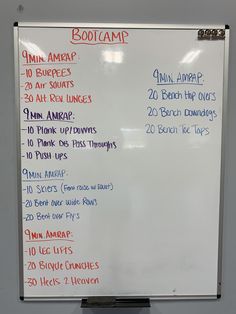 BOOTCAMP
9 MIN AMRAP:
-10 BURPEES
-20 AIR SQUATS
-30 ALT REV LUNGES
9 MIN AMRAP:
-10 PLANK UP/DOWNS
-10 PLANK DB PASS THROUGHS
-10 PUSH-UPS
9 MIN AMRAP:
-10 SKIERS (FRONT RAISE W/ SQUAT)
-20 BENT OVER WIDE ROWS
-20 BENT OVER FLY'S
9 MIN. AMRAP:
-10 LEG LIFTS
-20 BICYCLE CRUNCHES
-30 HEELS 2 HEAVEN
9 MIN AMRAP:
20 BENCH HOP OVERS
20 BENCH DOWNDOGS
20 BENCH TOE TAPS